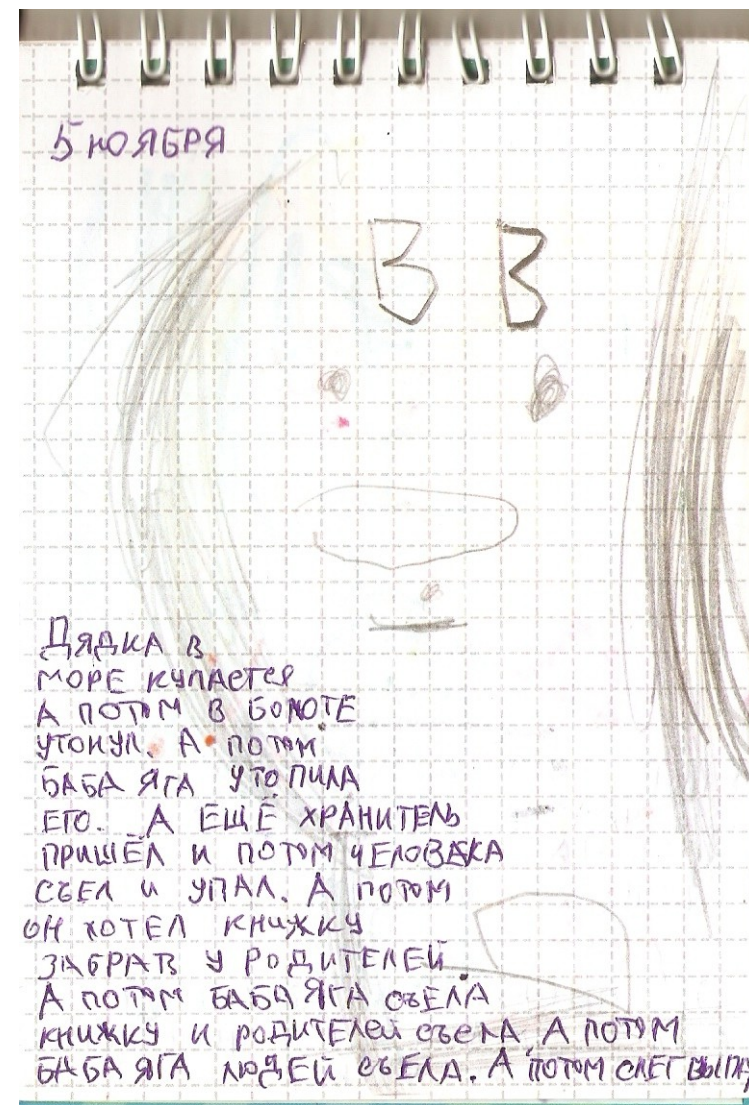 5 НОЯБРЯ
В В
ДЯДКА В
МОРЕ КУПАЕТСЯ
А ПОТОМ В БОЛОТЕ
УТОНУЛ. А ПОТОМ
БАБА ЯГА УТОПИЛА
ЕГО. А ЕЩЁ ХРАНИТЕЛЬ
ПРИШЁЛ И ПОТОМ ЧЕЛОВЕКА
СЪЕЛ И УПАЛ. А ПОТОМ
ОН ХОТЕЛ КНИЖКУ
ЗАБРАТЬ У РОДИТЕЛЕЙ.
А ПОТОМ БАБА ЯГА СЪЕЛА
КНИЖКУ И РОДИТЕЛЕЙ СЪЕЛА. А ПОТОМ
БАБА ЯГА ЛЮДЕЙ СЪЕЛА. А ПОТОМ СНЕГ